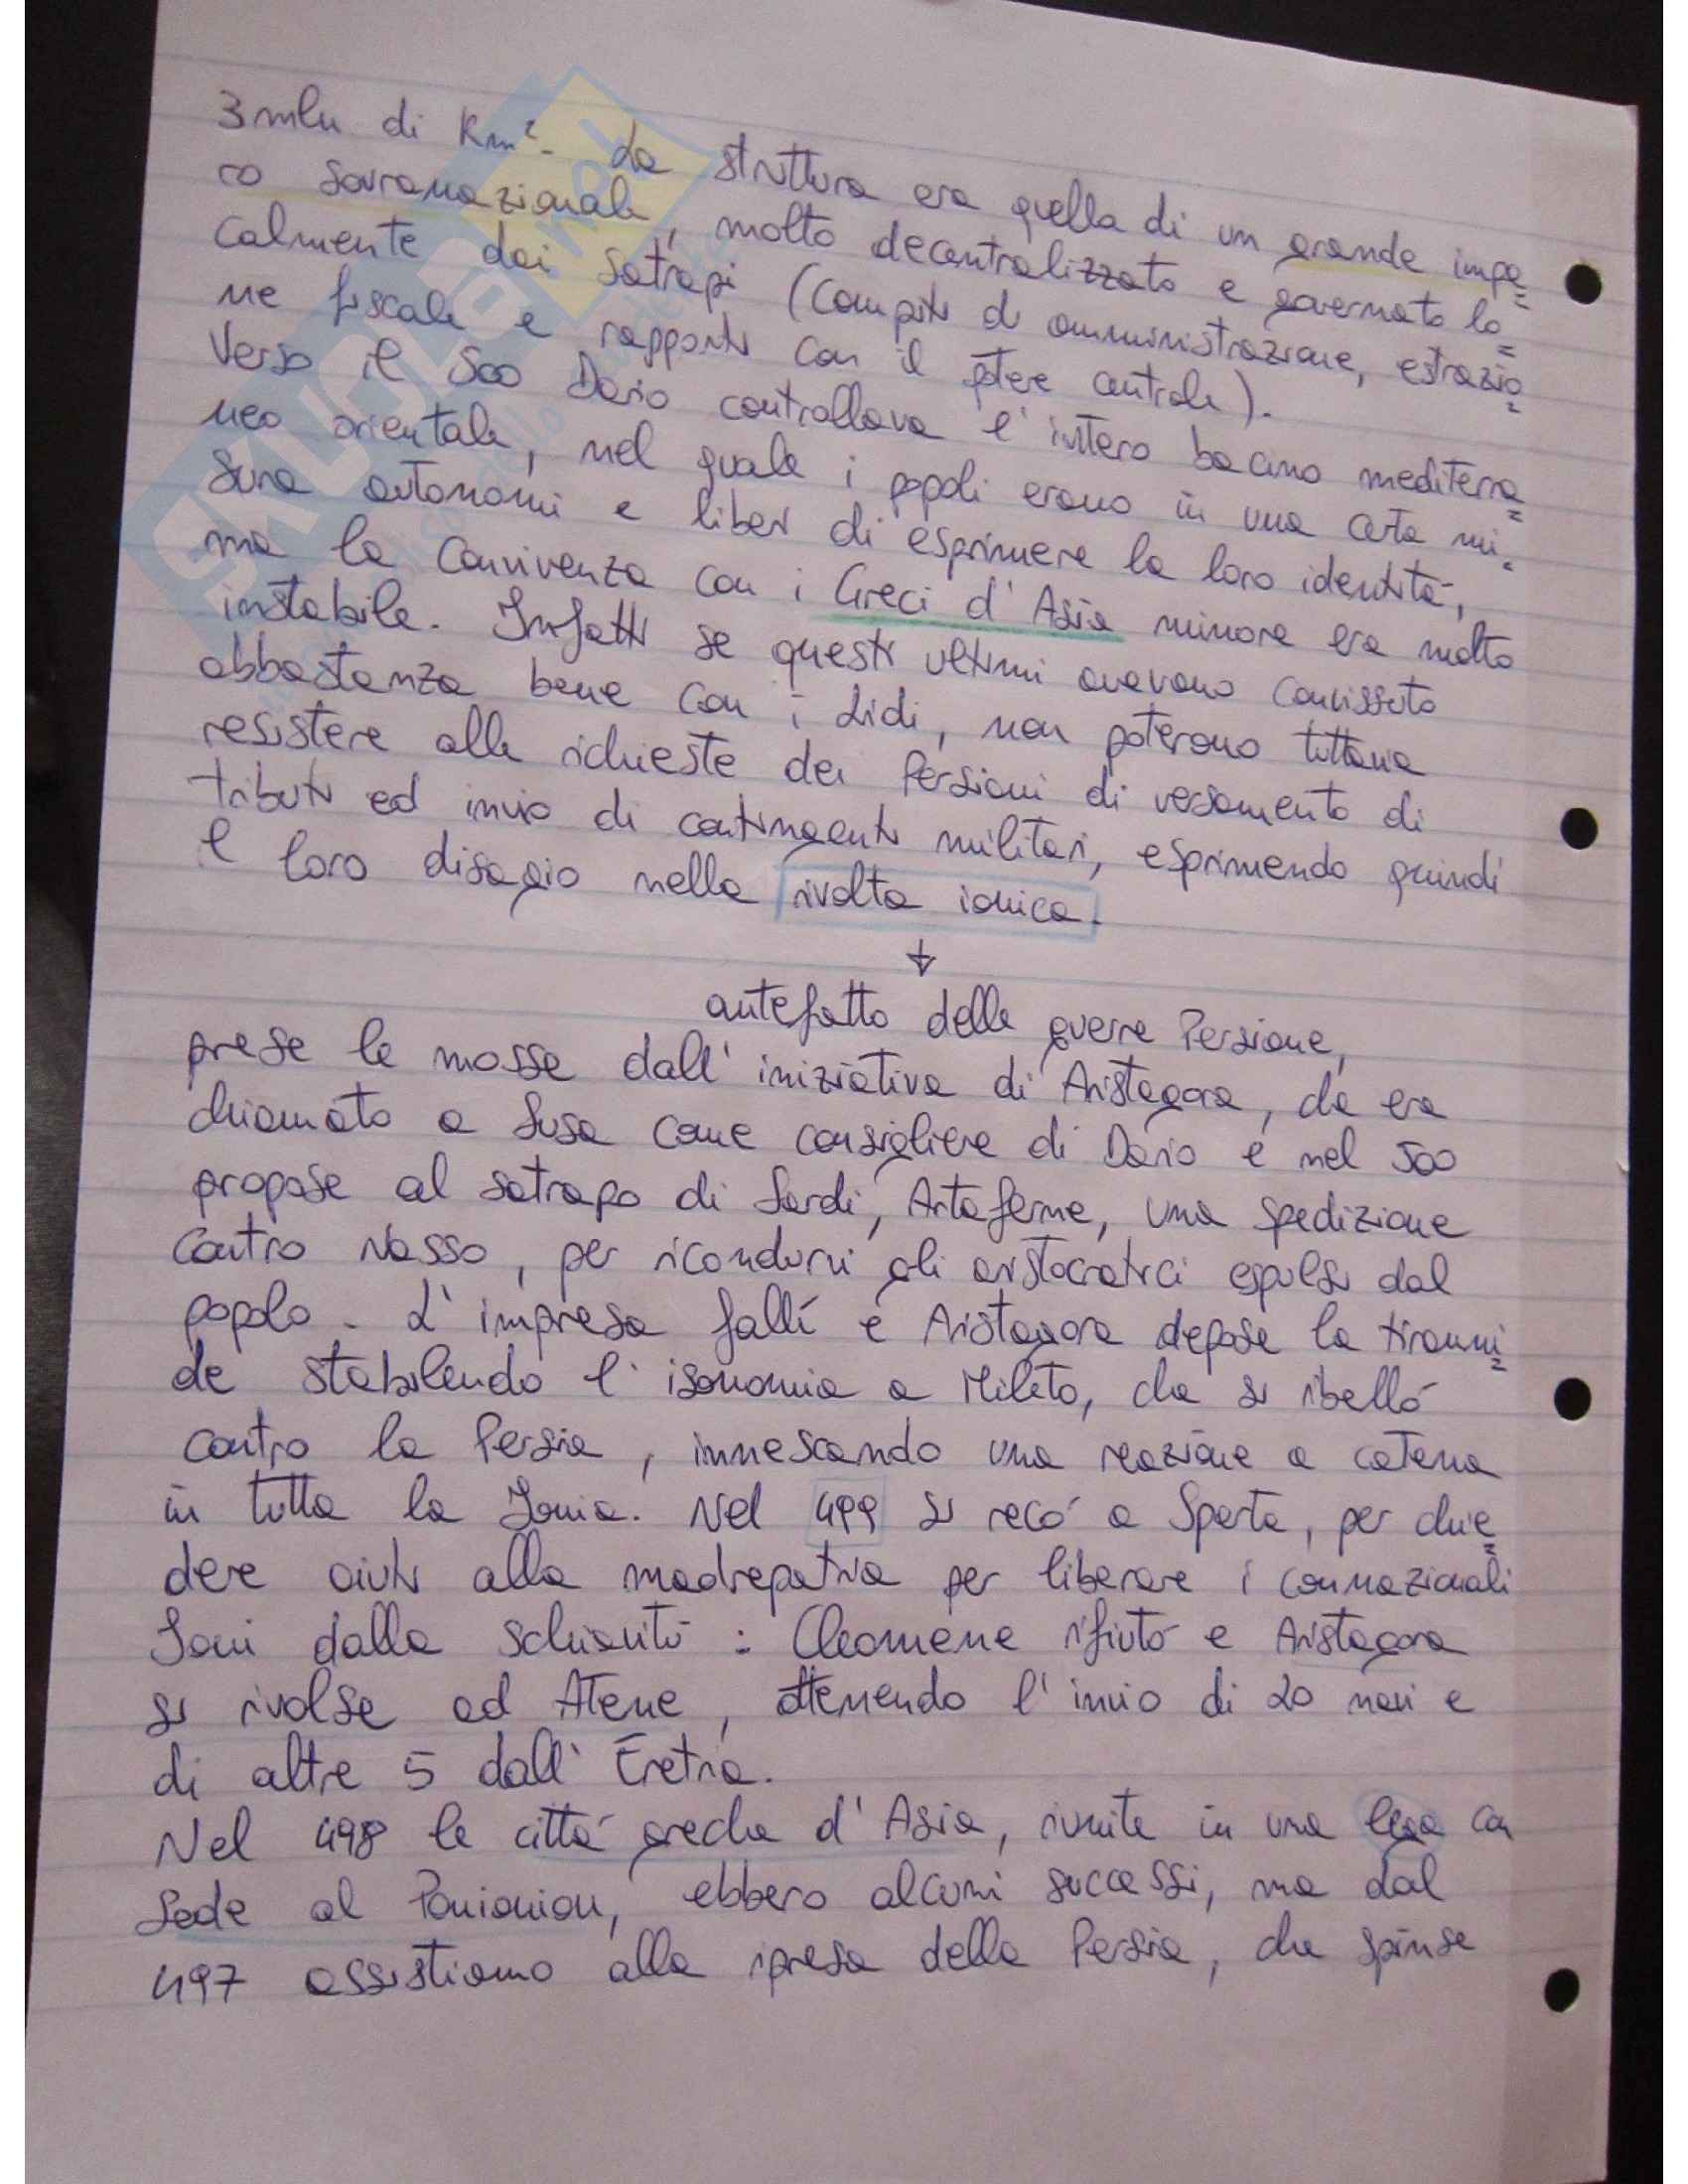 3 mln di Km². La struttura era quella di un grande impe=
ro sovranazionale, molto decentralizzato e governato lo=
calmente dai satrapi (compiti di amministrazione, estrazio=
ne fiscale e rapporti con il potere centrale).
Verso il 500 Dario controllava l'intero bacino mediterra=
neo orientale, nel quale i popoli erano in una certa mi=
sura autonomi e liberi di esprimere la loro identità,
ma la convivenza con i Greci d'Asia minore era molto
instabile. Infatti se questi ultimi avevano convissuto
abbastanza bene con i Lidi, non poterono tuttavia
resistere alle richieste dei Persiani di versamento di
tributi ed invio di contingenti militari, esprimendo quindi
il loro disagio nella rivolta ionica.
↓
antefatto delle guerre Persiane,
prese le mosse dall'iniziativa di Aristagora, che era
chiamato a Susa come consigliere di Dario e nel 500
propose al satrapo di Sardi, Artaferne, una spedizione
contro Nasso, per ricondurvi gli aristocratici espulsi dal
popolo. L'impresa fallì e Aristagora depose la tiranni=
de stabilendo l'isonomia a Mileto, che si ribellò
contro la Persia, innescando una reazione a catena
in tutta la Ionia. Nel 499 si recò a Sparta, per chie=
dere aiuti alla madrepatria per liberare i connazionali
Ioni dalla schiavitù: Cleomene rifiutò e Aristagora
si rivolse ad Atene, ottenendo l'invio di 20 navi e
di altre 5 dall'Eretria.
Nel 498 le città greche d'Asia, riunite in una lega con
sede al Panionion, ebbero alcuni successi, ma dal
497 assistiamo alla ripresa della Persia, che spinse
SKUOLA.net